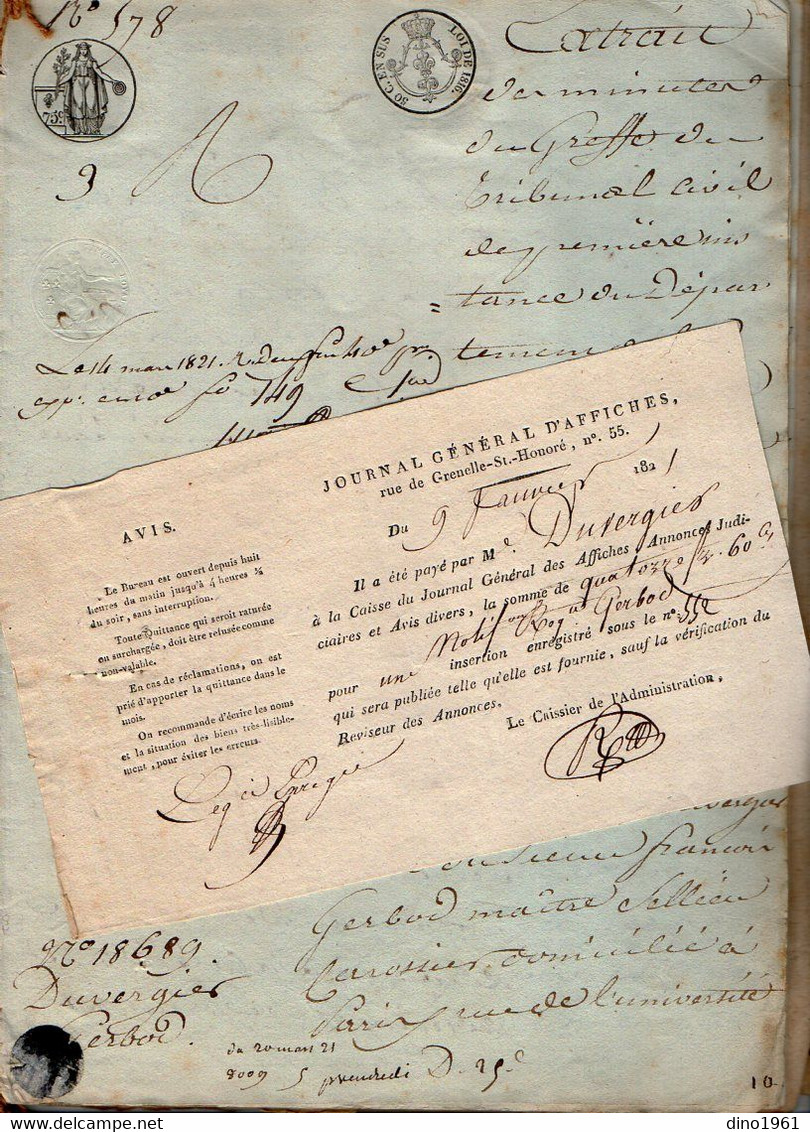 No 578
75c
50 C. EN SUS LOI DE 1816.
Extrait
des minutes
du Greffe du
Tribunal civil
de première ins
tance du Dépar
tement
3
Le 14 mars 1821.
749
JOURNAL GÉNÉRAL D'AFFICHES,
rue de Grenelle-St.-Honoré, n°. 55.
Du 9 Janvier 1821
Il a été payé par Me. Duvergier
à la Caisse du Journal Général des Affiches, Annonces Judi-
ciaires et Avis divers, la somme de quatorze f. 60 c
pour une Notif on Req ut Gerbod
insertion enregistré sous le n°. 552
qui sera publiée telle qu'elle est fournie, sauf la vérification du
Reviseur des Annonces.
Le Caissier de l'Administration,
AVIS.
Le Bureau est ouvert depuis huit
heures du matin jusqu'à 4 heures ½
du soir, sans interruption.
Toute Quittance qui seroit raturée
ou surchargée, doit être refusée comme
non-valable.
En cas de réclamations, on est
prié d'apporter la quittance dans le
mois.
On recommande d'écrire les noms
et la situation des biens très-lisible-
ment, pour éviter les erreurs.
Monsieur françois
Gerbod maître Sellier
Carossier domicilié à
Paris, rue de l'université
No 18689.
Duvergier
Gerbod.
du 20 mars 21
8009
10
dino1961